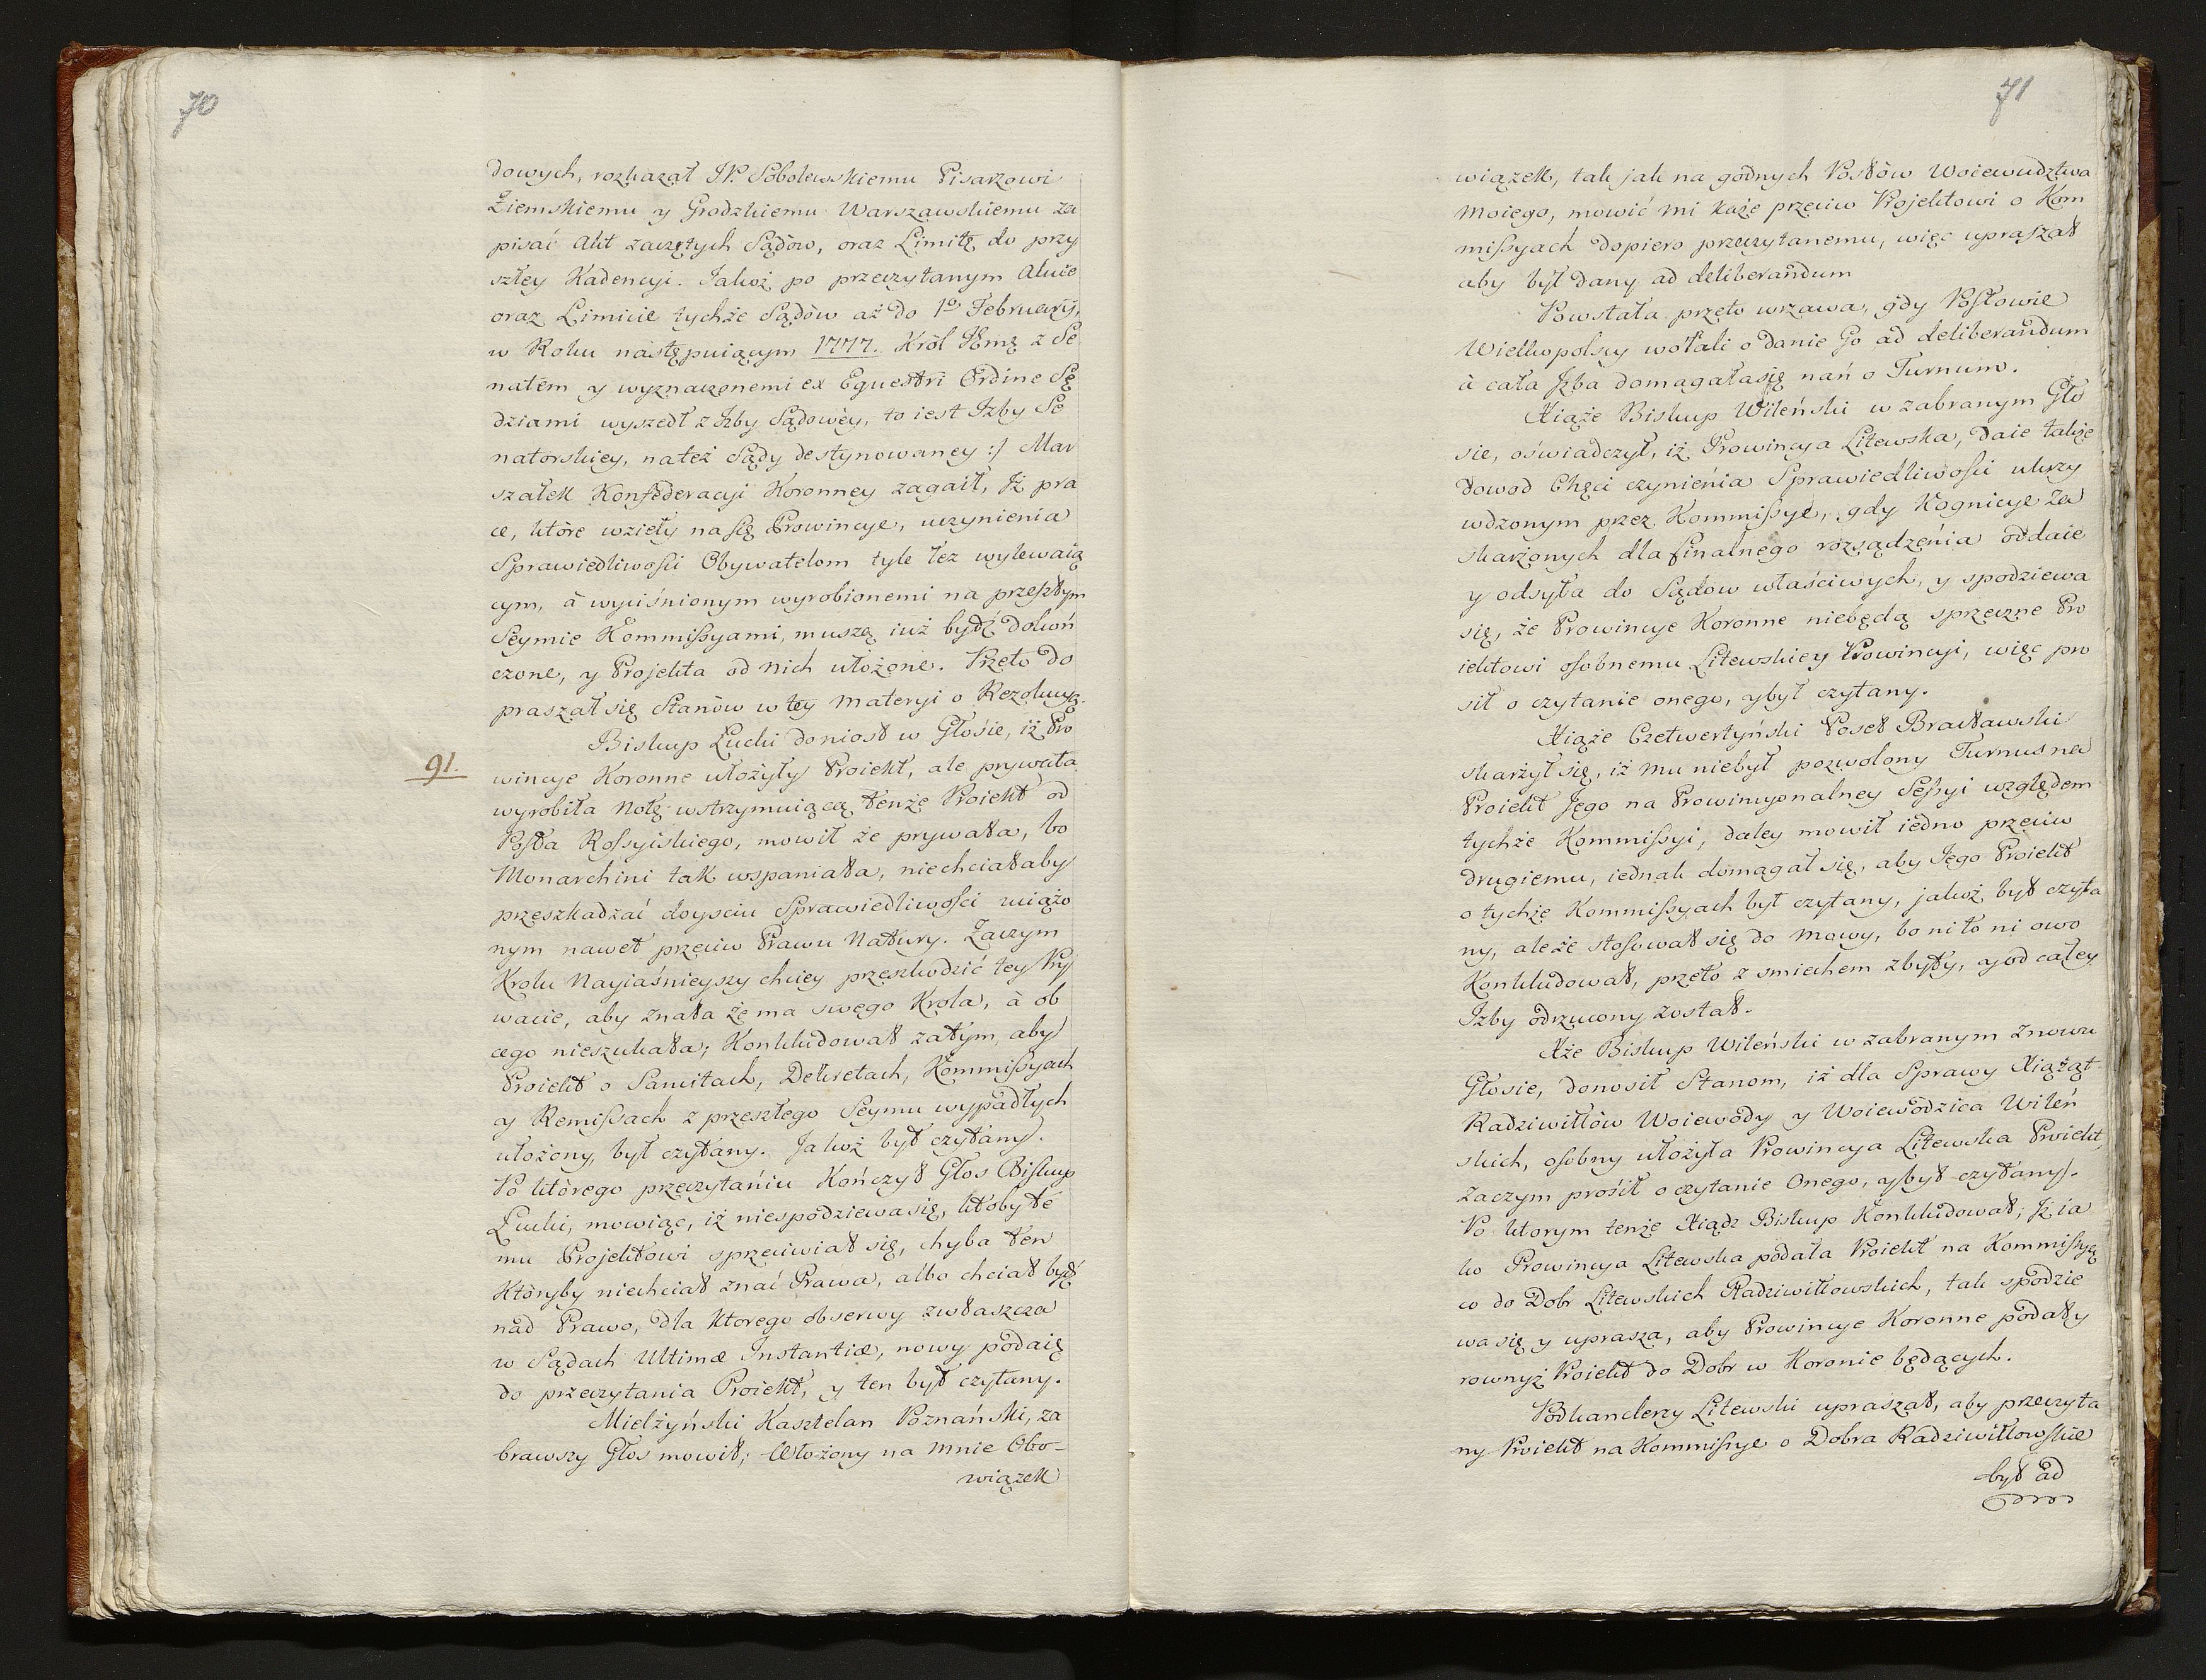 70
dowych, rozkazał JP. Sobolewskiemu Pisarzowi
Ziemskiemu y Grodzkiemu Warszawskiemu za
pisać Akt zaczętych Sądòw, oraz Limitę do przy
szłey Kadencyi. Jakoż po przeczytanym Akcie
oraz Limicie tychże Sądòw aż do 1º February,
w Roku następuiącym 1777. Kròl JEmę z Se
natem y wyznaczonemi ex Equestri Ordine Sę
dziami wyszedł z Jzby Sądowèy, to iest Jzby Se
natorskiey, na też Sądy destynowaney :/ Mar
szałek Konfederacyi Koronney zagaił, Jż pra
ce, ktòre wzieły na się Prowincye, uczynienia
Sprawiedliwości Obywatelom tyle łez wylewaią
cym, à wyciśnionym wyrobionemi na przeszłym
Seymie Kommissyami, muszą iuż bydź dokoń
czone, y Projekta od nich ułożone. Przeto do
praszał się Stanòw w tey materyi o Rezolucyą.
Biskup Łucki doniosł w Głosie, iż Pro
91.
wincye Koronne ułożyły Proiekt, ale prywata
wyrobiła Notę wstrzymuiącą tenże Proiekt od
Posła Rossyiskiego, mowił że prywata, bo
Monarchini tak wspaniała, niechciałaby
przeszkadzać doyściu Sprawiedliwości uciążo
nym nawet przeciw Prawu Natury. Zaczym
Krolu Nayiaśnieyszy chciey przeszkodzić tey Pry
wacie, aby znała że ma swego Krola, à ob
cego nieszukała; Konkludował zatym, aby
Proiekt o Sancitach, Dekretach, Kommissyach
y Remissach z przeszłego Seymu wypadłych
ułożony, był czytany. Jakoż był czytany.
Po ktòrego przeczytaniu Kończył Głos Biskup
Łucki, mowiąc, iż niespodziewa się, ktoby te
mu Projektowi sprzeciwiał się, chyba ten
Ktòryby niechciał znać Prawa, albo chciał bydź
nad Prawo, dla ktorego obserwy zwłaszcza
w Sądach Ultimæ Instantiæ, nowy podaię
do przeczytania Proiekt, y ten był czytany.
Mielżyński Kasztelan Poznański, za
brawszy Głos mowił; Włożony na mnie Obo-
wiązek
71
wiązek, tak jak na godnych Posłòw Woiewudztwa
Moiego, mowić mi każe przeciw Projektowi o Kom
missyach dopiero przeczytanemu, więc upraszał
aby był dany ad deliberandum
Powstała przeto wrzawa, gdy Posłowie
Wielkopolscy wołali o danie Go ad deliberandum
à cała Jzba domagała się nań o Turnum.
Xiąże Biskup Wileński w zabranym Gło
sie, oświadczył, iż Prowincya Litewska, daie także
dowod Chęci czynienia Sprawiedliwości ukrzy
wdzonym przez Kommissye, gdy Kognicye za
skarżonych dla finalnego rozsądzenia oddaie
y odsyła do Sądow właściwych, y spodziewa
się, że Prowincye Koronne niebędą sprzeczne Pro
iektowi osobnemu Litewskiey Prowincyi, więc pro
sił o czytanie onego, y był czytany.
Xiąże Czetwertyński Poseł Bracławski
skarżył się, iż mu niebył pozwolony Turnus na
Proiekt Jego na Prowincyonalney Sessyi względem
tychże Kommissyi, daley mowił iedno przeciw
drugiemu, iednak domagał się, aby Jego Proiekt
o tychże Kommissyach był czytany, jakoż był czyta
ny, ale że stosował się do Mowy, bo ni to ni owo
Konkludował, przeto z smiechem zbyty, y od całey
Izby odrzucony został.
Xże Biskup Wileński w zabranym znowu
Głosie, donosił Stanom, iż dla Sprawy Xiążąt
Radziwiłłòw Woiewody y Woiewodzica Wileń
skich, osobny ułożyła Prowincya Litewska Proiekt,
zaczym prosił o czytanie Onego, y był czytany.
Po ktorym tenże Xiądz Biskup Konkludował; Jż ia
ko Prowincya Litewska podała Proiekt na Kommissyą
co do Dobr Litewskich Radziwiłłowskich, tak spodzie
wa się y uprasza, aby Prowincye Koronne podały
rownyż Proiekt do Dobr w Koronie będących.
Podkanclerzy Litewski upraszał, aby przeczyta
ny Proiekt na Kommissye o Dobra Radziwiłłowskie
był ad